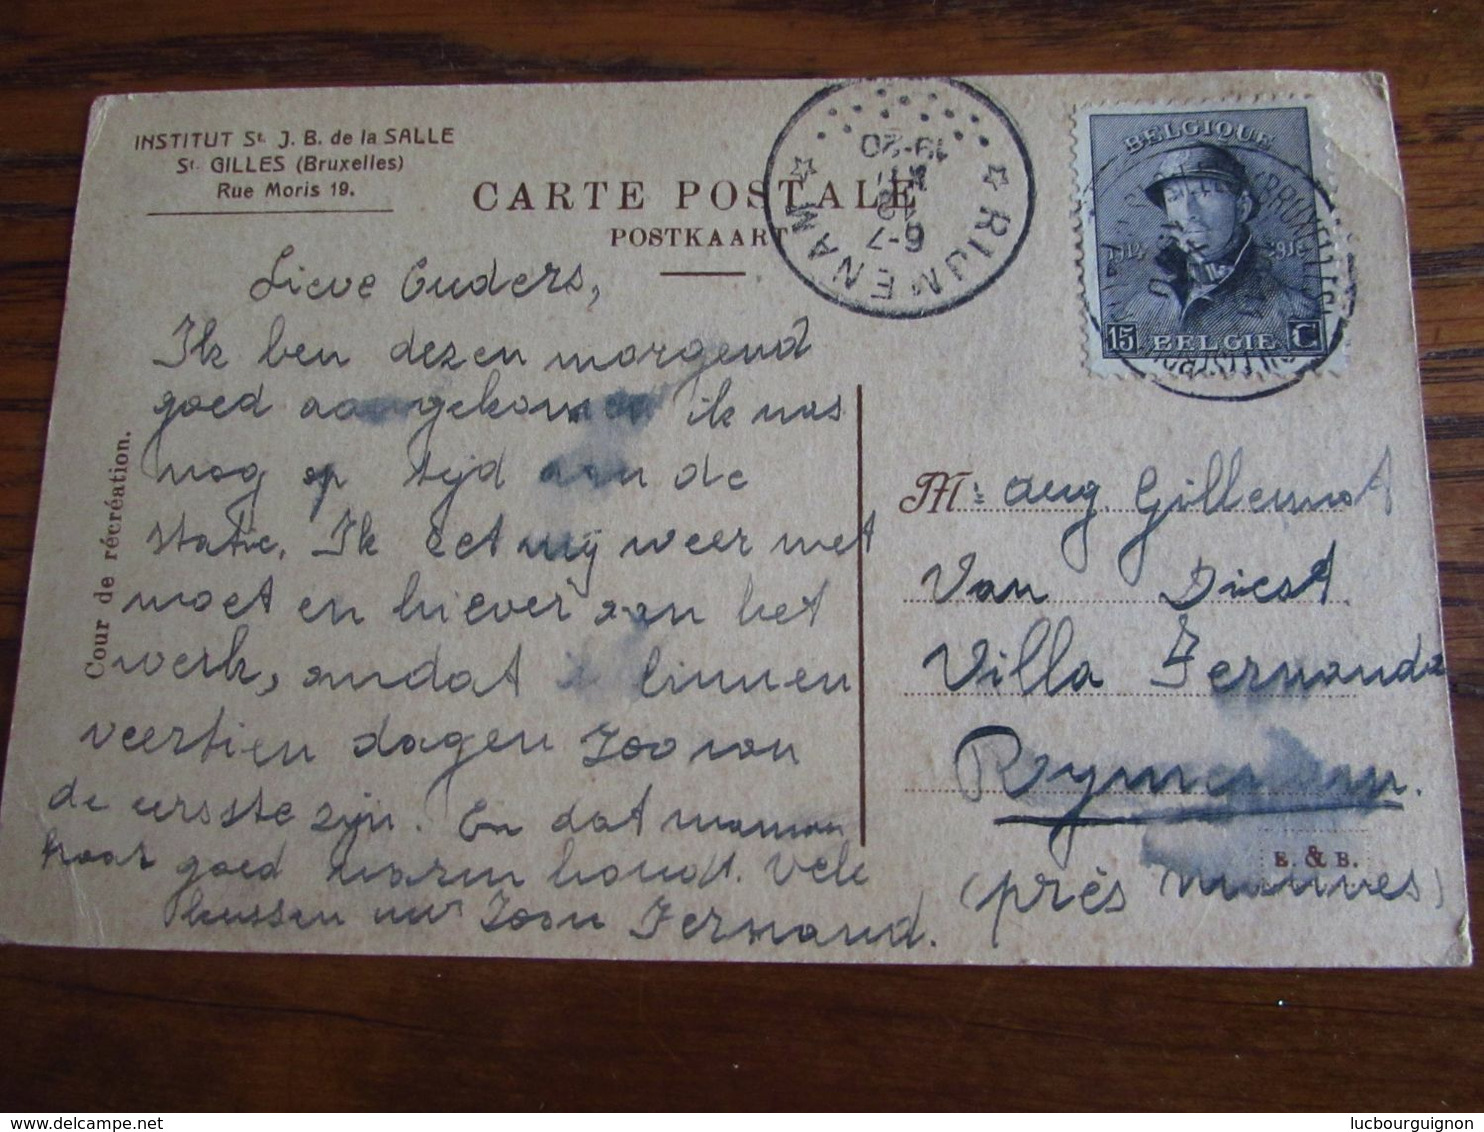 INSTITUT St. J. B. de la SALLE
St. GILLES (Bruxelles)
Rue Moris 19.
CARTE POSTALE
POSTKAART
Cour de récréation.
Lieve Ouders,
Ik ben dezen morgend
goed aangekomen ik was
nog op tijd aan de
statie. Ik zet mij weer met
moet en hiever aan het
werk, omdat ik binnen
veertien dagen zoo van
de eersste zijn. En dat maman
haar goed warm houdt. Vele
kussen uw zoon Fernand.
RIJMENAM
6-7
19-20
BELGIQUE
15 BELGIE C
M: Aug. Gillemot
Van Diest
Villa Fernanda
Rymenam.
(près Malines)
E. & B.
lucbourguignon